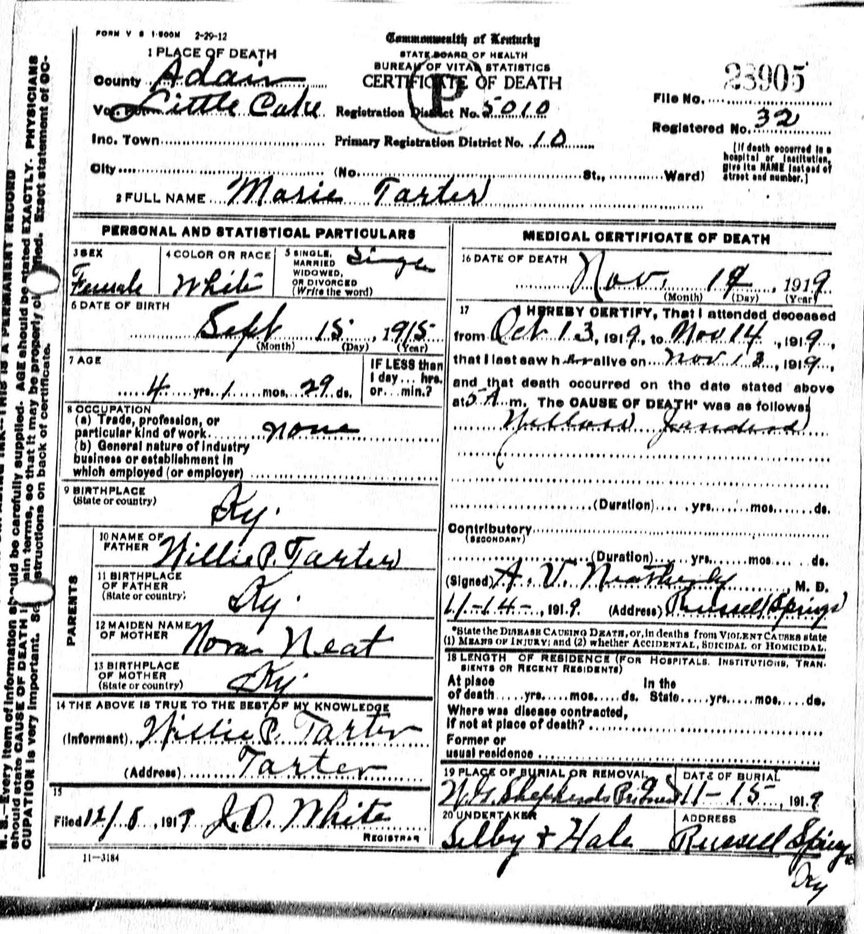 FORM V S 1-500M 2-29-12
Commonwealth of Kentucky
STATE BOARD OF HEALTH
BUREAU OF VITAL STATISTICS
CERTIFICATE OF DEATH
P
1 PLACE OF DEATH
County Adair
Little Cake
Inc. Town
City
Registration District No. 5010
Primary Registration District No. 10
(No. St., Ward)
File No. 23905
Registered No. 32
[If death occurred in a
hospital or institution,
give its NAME instead of
street and number.]
2 FULL NAME Marie Tarter
PERSONAL AND STATISTICAL PARTICULARS
3 SEX
Female
4 COLOR OR RACE
White
5 SINGLE,
MARRIED
WIDOWED,
OR DIVORCED
(Write the word)
6 DATE OF BIRTH
Sept 15, 1915
(Month) (Day) (Year)
7 AGE
4 yrs. 1 mos. 29 ds.
IF LESS than
1 day... hrs.
or... min.?
8 OCCUPATION
(a) Trade, profession, or
particular kind of work none
(b) General nature of industry
business or establishment in
which employed (or employer)
9 BIRTHPLACE
(State or country)
Ky.
PARENTS
10 NAME OF
FATHER Willie P. Tarter
11 BIRTHPLACE
OF FATHER
(State or country)
Ky.
12 MAIDEN NAME
OF MOTHER Nora Neat
13 BIRTHPLACE
OF MOTHER
(State or country) Ky.
14 THE ABOVE IS TRUE TO THE BEST OF MY KNOWLEDGE
(Informant) Willie P. Tarter
(Address) Tarter
15
Filed 12/5, 1919 J.O. White
REGISTRAR
11-3184
MEDICAL CERTIFICATE OF DEATH
16 DATE OF DEATH
Nov. 14, 1919
(Month) (Day) (Year)
17 I HEREBY CERTIFY, That I attended deceased
from Oct 13, 1919, to Nov 14, 1919,
that I last saw her alive on Nov 13, 1919,
and that death occurred on the date stated above
at 5 A. m. The CAUSE OF DEATH* was as follows
(Duration) yrs. mos. ds.
Contributory
(SECONDARY)
(Duration) yrs. mos. ds.
(Signed) A. V. Neatherly M. D.
11-14-, 1919 (Address) Russell Springs
*State the DISEASE CAUSING DEATH, or, in deaths from VIOLENT CAUSES state
(1) MEANS OF INJURY; and (2) whether ACCIDENTAL, SUICIDAL or HOMICIDAL.
18 LENGTH OF RESIDENCE (FOR HOSPITALS, INSTITUTIONS, TRAN-
SIENTS OR RECENT RESIDENTS)
At place In the
of death yrs. mos. ds. State yrs. mos. ds.
Where was disease contracted,
If not at place of death?
Former or
usual residence
19 PLACE OF BURIAL OR REMOVAL
Shepherds
DATE OF BURIAL
11-15, 1919
20 UNDERTAKER
Selby & Hale
ADDRESS
Russell Springs
Ky
N. B.—Every item of information should be carefully supplied. AGE should be stated EXACTLY. PHYSICIANS
should state CAUSE OF DEATH in plain terms, so that it may be properly classified. Exact statement of OC-
CUPATION is very important. See instructions on back of certificate.